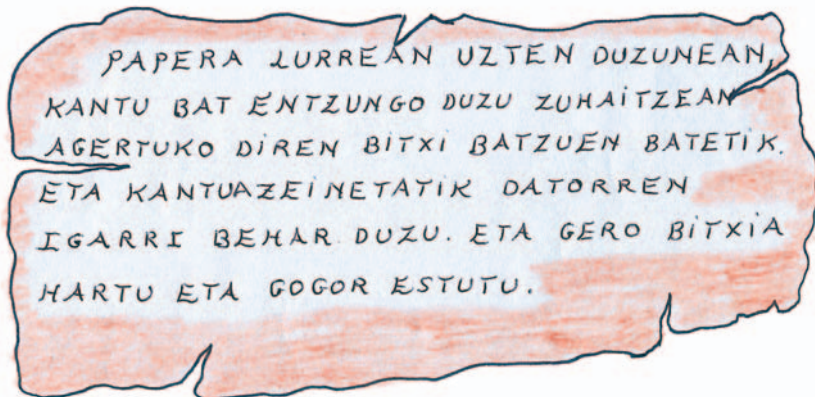 PAPERA LURREAN UZTEN DUZUNEAN,
KANTU BAT ENTZUNGO DUZU ZUHAiTZEAN
AGERTUKO DiREN BiTXi BATZUEN BATETiK.
ETA KANTUAZEiNETATiK DATORREN
IGARRI BEHAR DUZU. ETA GERO BiTXiA
HARTU ETA GOGOR ESTUTU.